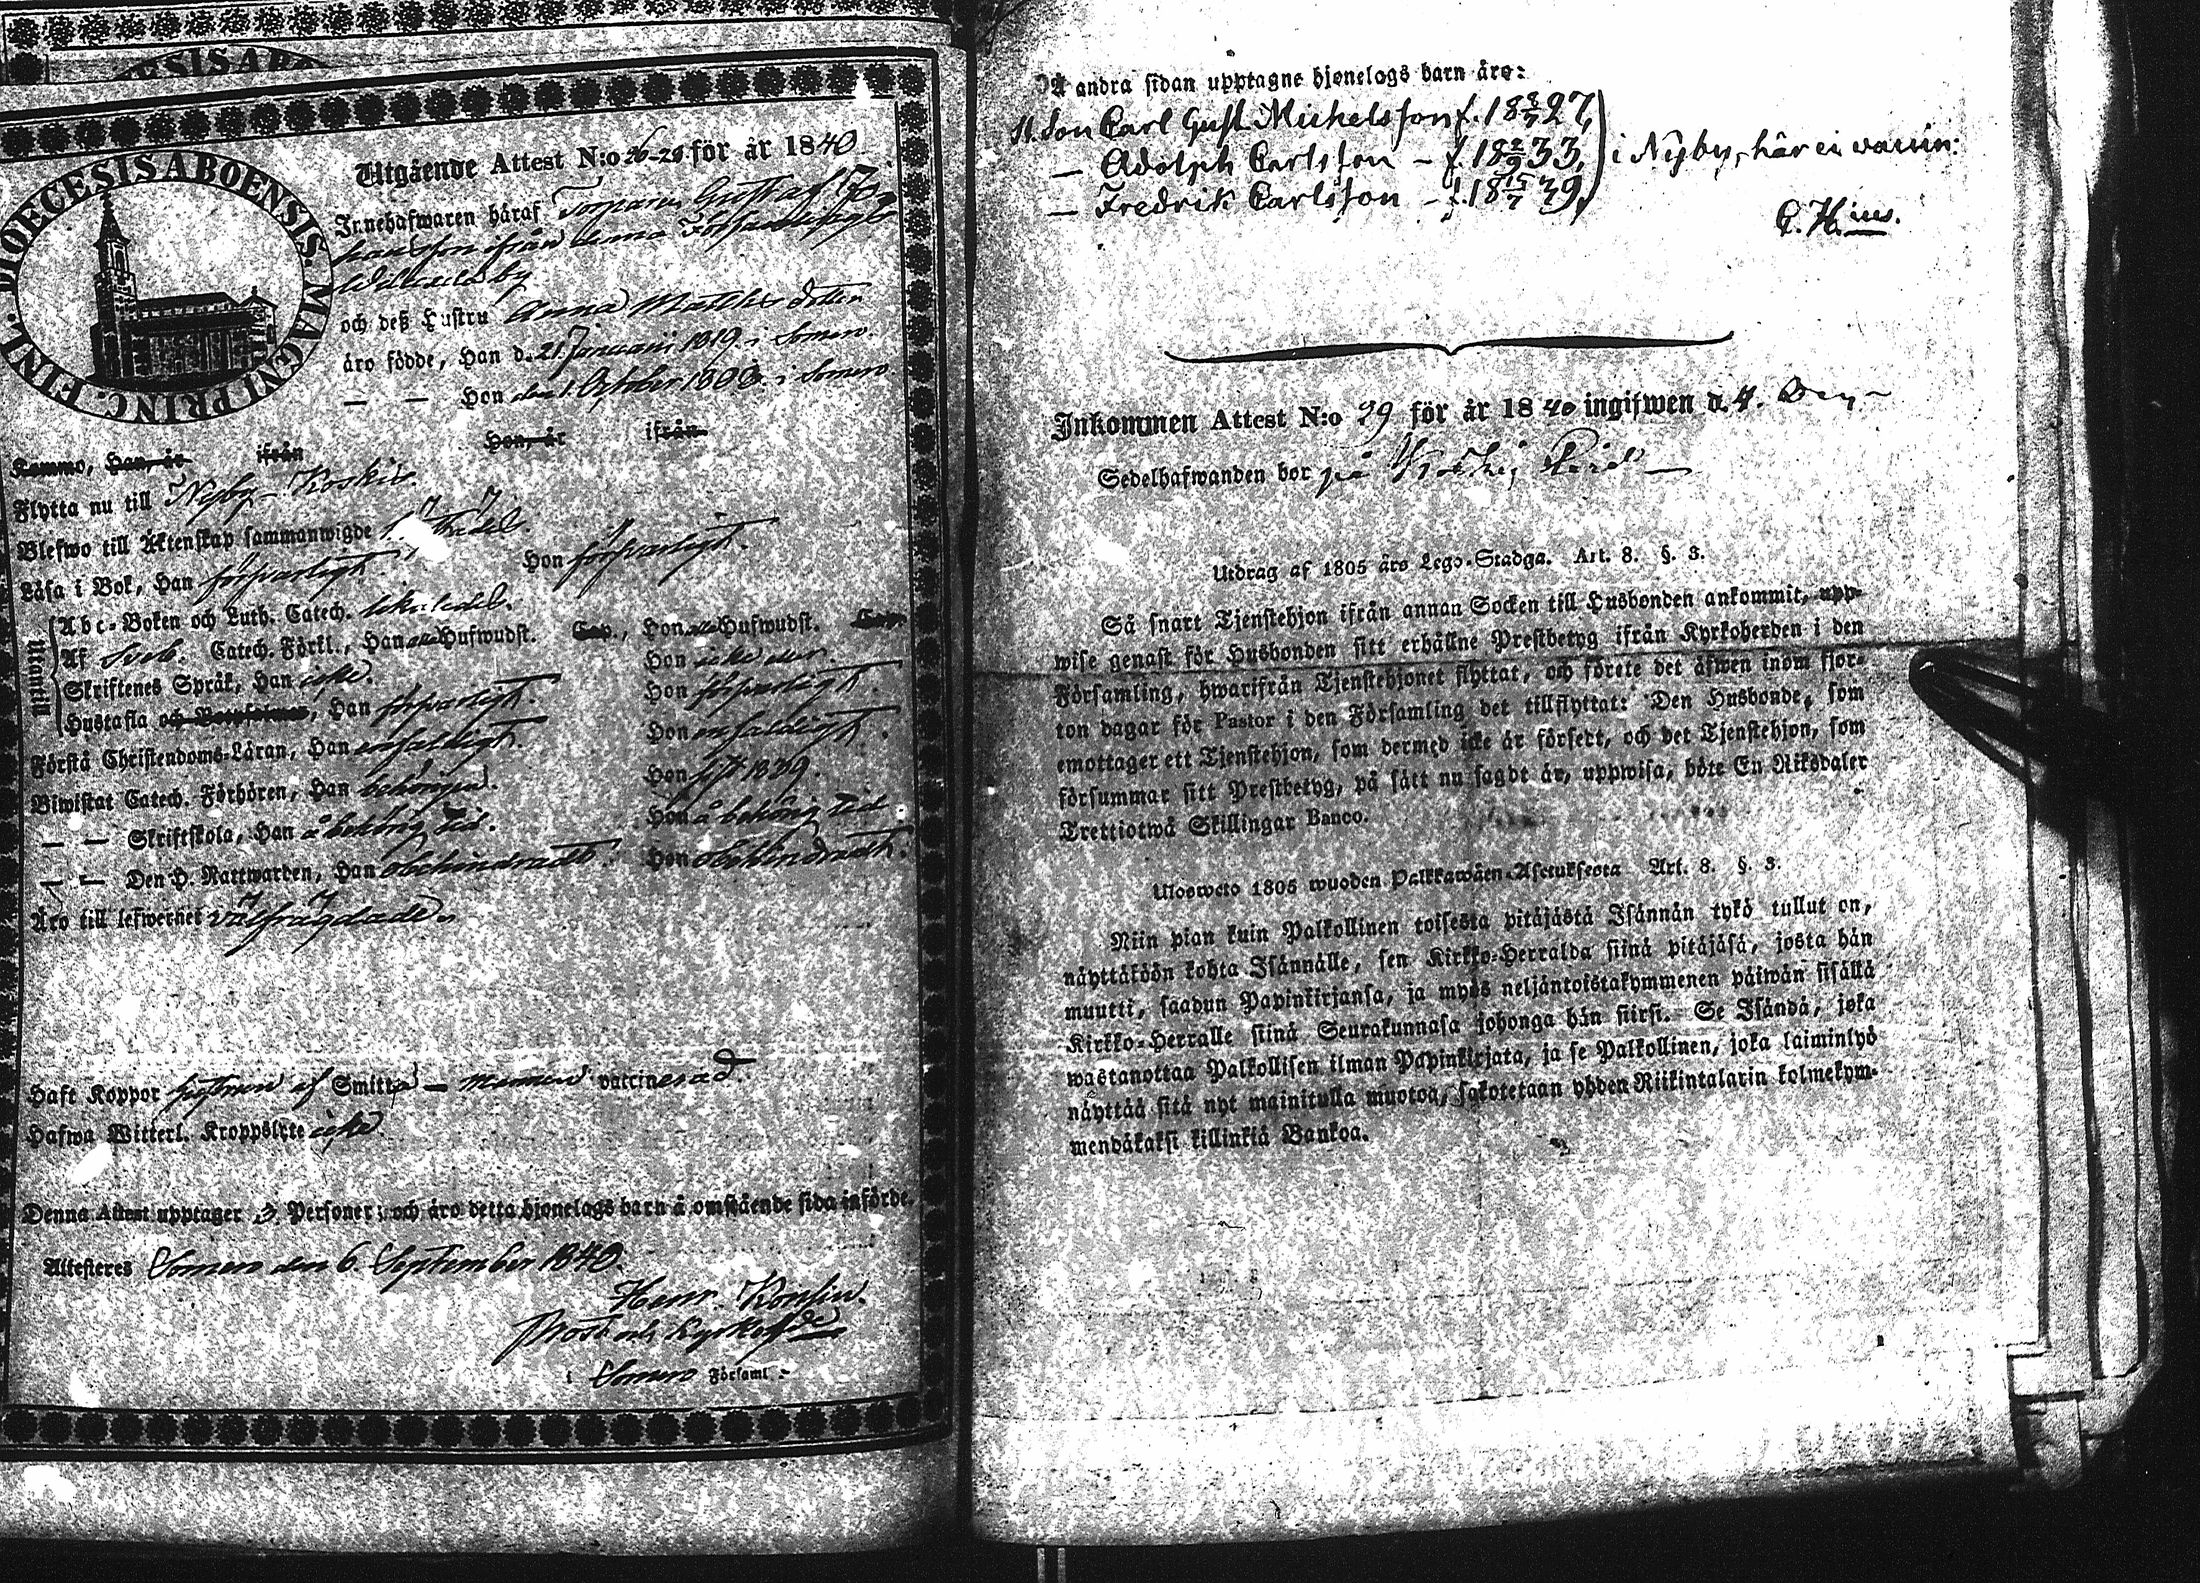 DIOECESIS ABOENSIS. MAGNI PRINC. FINL.
Utgående Attest N:o 26-28 för år 1840.
Innehafwaren häraf Torparen Gustaf Jo-
hansson ifrån denna Församlings
by
och deß Hustru Anna Matthsdotter
äro födde, Han d. 21 Januarii 1819 i Somero.
— — Hon den 1. October 1808 i Somero
Kommo, Han, år ifrån Hon, år ifrån
Flytta nu till Nyby Koskis.
Blefwo till Äktenskap sammanwigde
Läsa i Bok, Han försvarligt. Hon försvarligt.
Utantill
Abc-Boken och Luth. Catech. likaledes.
Af Sveb. Catech. Förkl., Han alla Hufwudst. Cap., Hon alla Hufwudst. Cap.
Skriftenes Språk, Han icke. Hon icke
Hustafla och Botpsalmer, Han försvarligt. Hon försvarligt.
Förstå Christendoms-Läran, Han enfaldigt. Hon enfaldigt.
Biwistat Catech. Förhören, Han behörigen. Hon sist 1839.
— — Skriftskola, Han å behörig tid. Hon å behörig tid
— — Den H. Nattwarden, Han obehindradt. Hon obehindradt.
Äro till lefwernet välfrägdade.
Haft Koppor hustrun af Smitta — mannen vaccinerad.
Hafwa Witterl. Kroppslyte icke.
Denna Attest upptager 3. Personer; och äro detta hjonelags barn å omstående sida införde.
Attesteras Somero den 6. September 1840.
Henr.
Prost och Kyrkohde
i Somero Församl:
På andra sidan upptagne hjonelags barn äro:
St. Son Carl Gust. Michelsson f. 18 8/7 27,
— Adolph Carlsson — f. 18 2/9 33,
— Fredrik Carlsson — f. 18 15/7 39,
i Nyby, här ei vaccin:
C. H:ius.
Inkommen Attest N:o 29 för år 1840 ingifwen d. 4.
Sedelhafwanden bor på
Utdrag af 1805 års Lego-Stadga. Art. 8. §. 3.
Så snart Tjenstehjon ifrån annan Socken till Husbonden ankommit, upp-
wise genast för Husbonden sitt erhållne Prestbetyg ifrån Kyrkoherden i den
Församling, hwarifrån Tjenstehjonet flyttat, och förete det äfwen inom fjor-
ton dagar för Pastor i den Församling det tillflyttat: Den Husbonde, som
emottager ett Tjenstehjon, som dermed icke är försedt, och det Tjenstehjon, som
försummar sitt Prestbetyg, på sätt nu sagdt är, uppwisa, böte En Riksdaler
Trettiotwå Skillingar Banco.
Ulosweto 1805 wuoden Palkkawäen-Asetuksesta Art. 8. §. 3.
Niin pian kuin Palkollinen toisesta pitäjästä Isännän tykö tullut on,
näyttäköön kohta Isännälle, sen Kirkko-Herralda siinä pitäjäsä, josta hän
muutti, saadun Papinkirjansa, ja myös neljäntoistakymmenen päiwän sisällä
Kirkko-Herralle siinä Seurakunnasa johonga hän siirsi. Se Isändä, joka
wastanottaa Palkollisen ilman Papinkirjata, ja se Palkollinen, joka laiminlyö
näyttää sitä nyt mainitulla muotoa, sakotetaan yhden Riikintalarin kolmekym-
mendäkaksi killinkiä Bankoa.